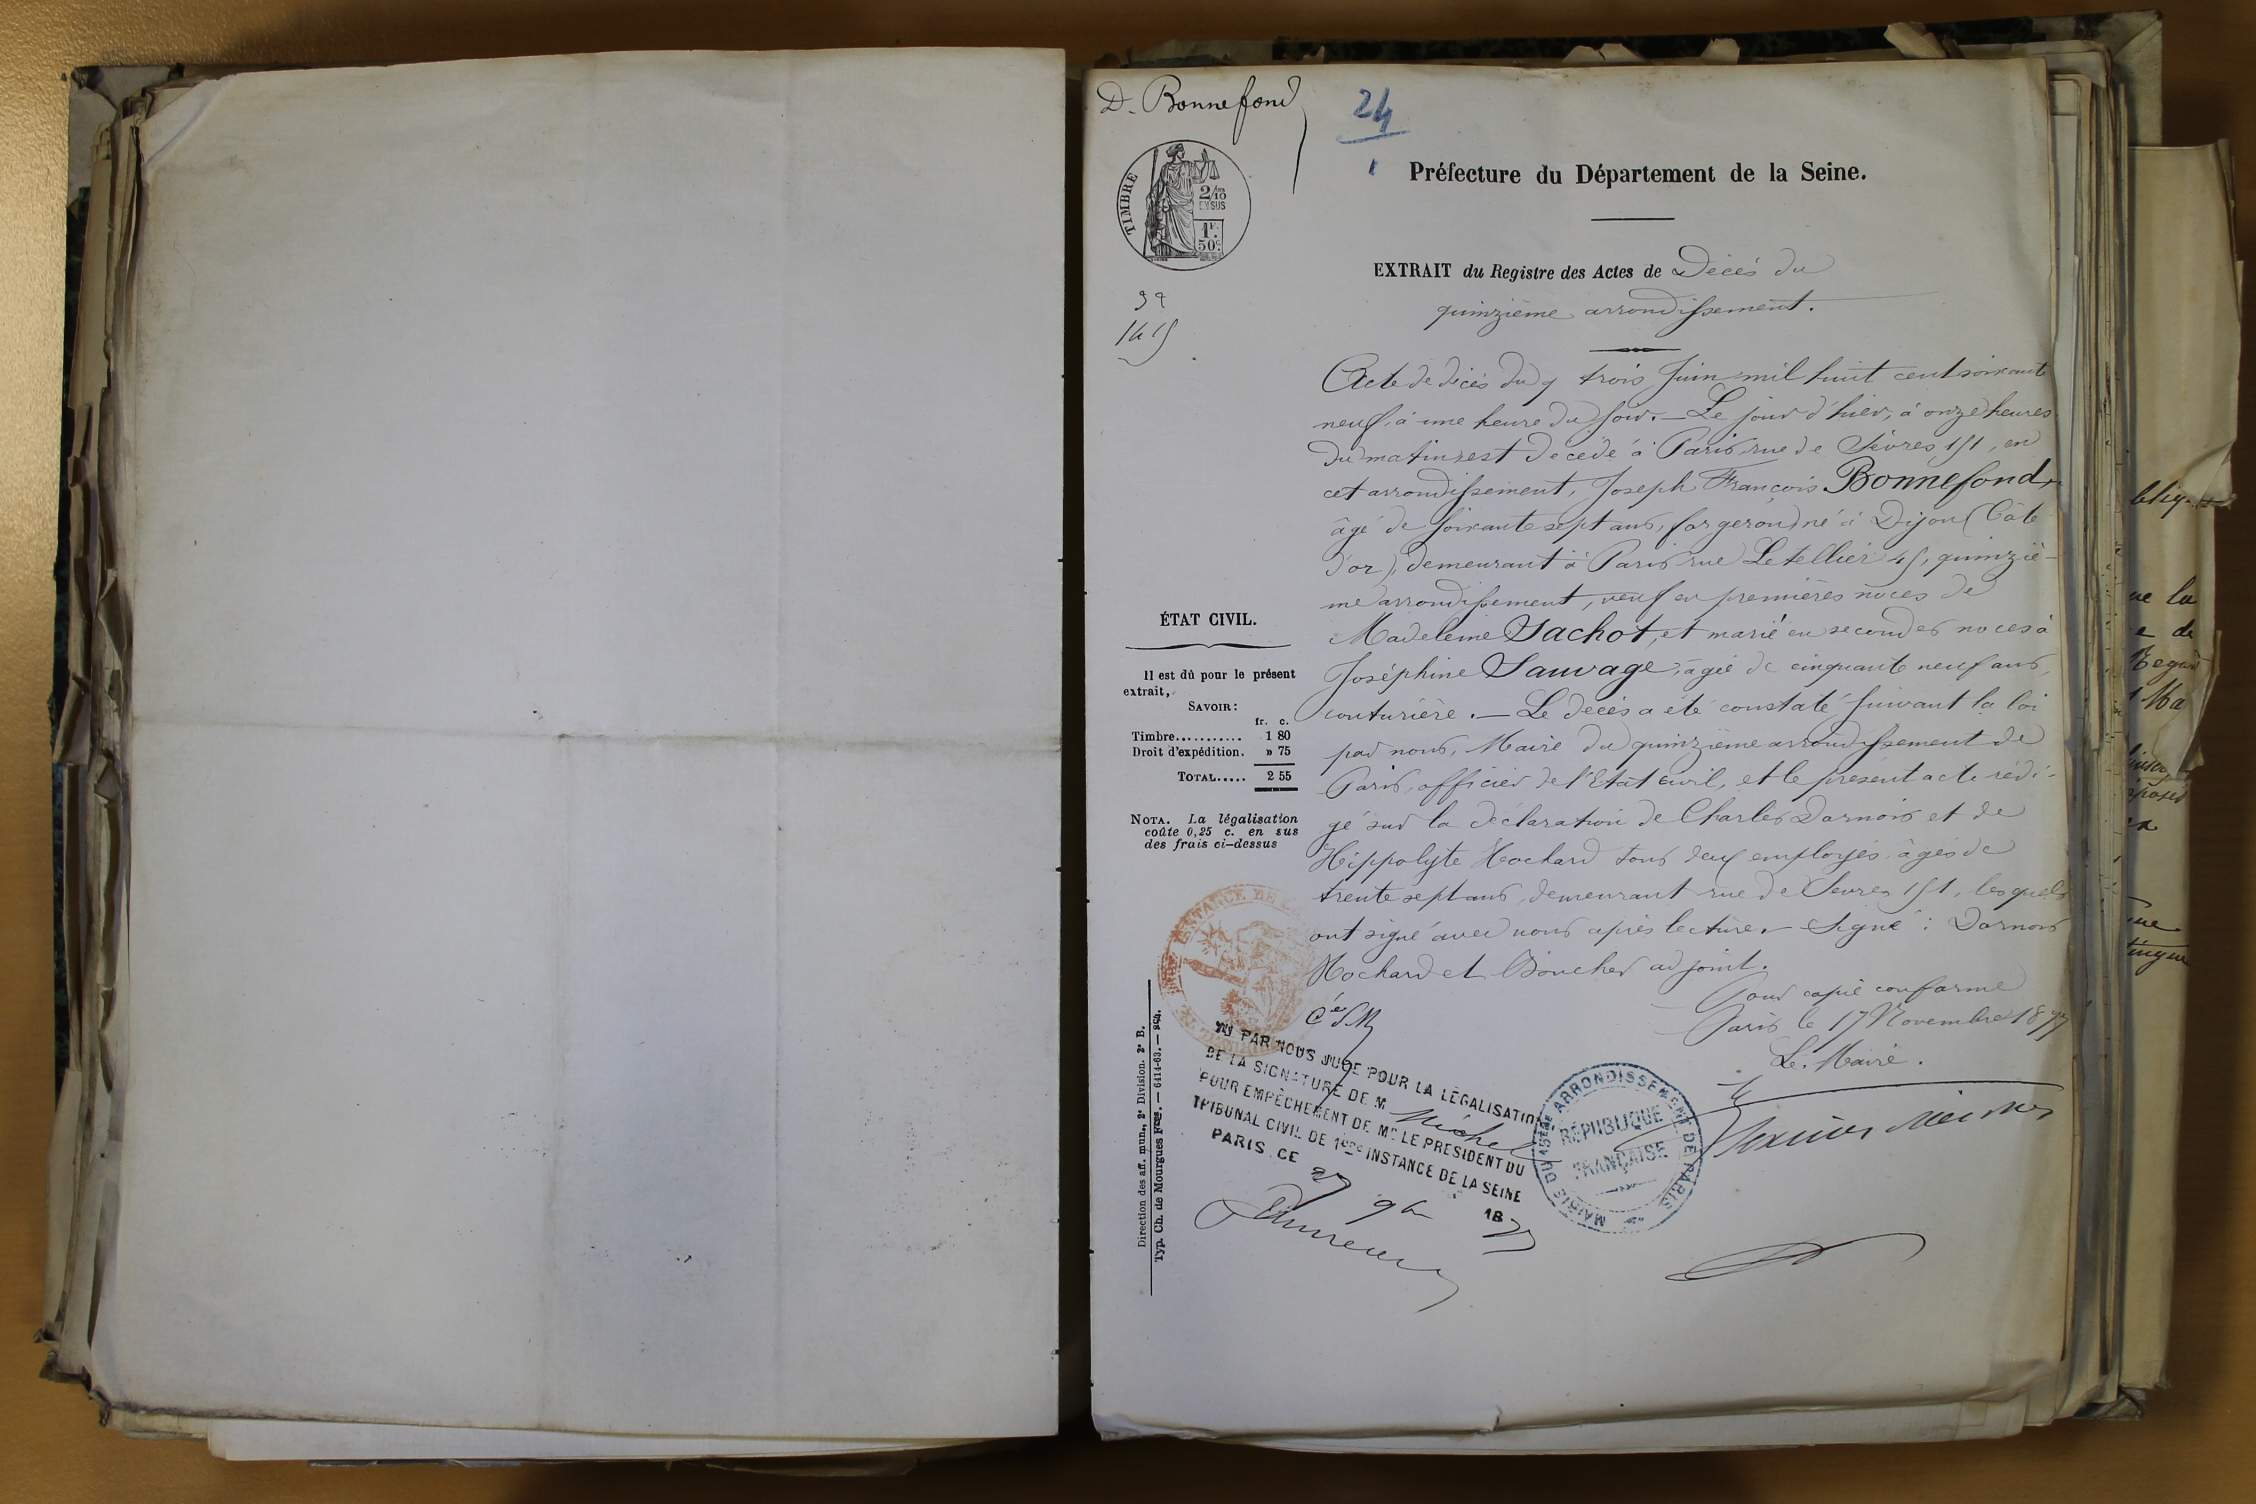 D. Bonnefond
24
TIMBRE
2/10
EN SUS
1F.
50c.
Préfecture du Département de la Seine.
EXTRAIT du Registre des Actes de Décès du
quinzième arrondissement.
Acte de décès du trois Juin mil huit cent soixante
neuf, à une heure du soir. — Le jour d'hier, à onze heures
du matin, est décédé à Paris rue de Sèvres 151, en
cet arrondissement, Joseph François Bonnefond,
âgé de soixante sept ans, forgeron, né à Dijon (Côte
d'or), demeurant à Paris rue Letellier 45, quinziè-
me arrondissement, veuf en premières noces de
Madeleine Sachot, et marié en secondes noces à
Joséphine Sauvage, âgée de cinquante neuf ans,
couturière. — Le décès a été constaté suivant la loi
par nous, Maire du quinzième arrondissement de
Paris, officier de l'Etat civil, et le présent acte rédi-
gé sur la déclaration de Charles Darnois et de
Hippolyte Hochard tous deux employés âgés de
trente sept ans, demeurant rue de Sèvres 151, lesquels
ont signé avec nous après lecture. — Signé : Darnois
Hochard et Boucher adjoint.
Pour copie conforme
Paris le 17 Novembre 1877
Le Maire.
ÉTAT CIVIL.
Il est dû pour le présent
extrait,
SAVOIR:
fr. c.
Timbre........... 1 80
Droit d'expédition. » 75
TOTAL..... 2 55
NOTA. La légalisation
coûte 0,25 c. en sus
des frais ci-dessus
VU PAR NOUS JUGE POUR LA LÉGALISATION
DE LA SIGNATURE DE M Michel
POUR EMPÊCHEMENT DE Mr LE PRÉSIDENT DU
TRIBUNAL CIVIL DE 1ère INSTANCE DE LA SEINE
PARIS, CE 27 9bre 1877
MAIRIE DU 15ème ARRONDISSEMENT DE PARIS
RÉPUBLIQUE
FRANÇAISE
Direction des aff. mun., 2e Division. 2e B.
Typ. Ch. de Mourgues Fres.